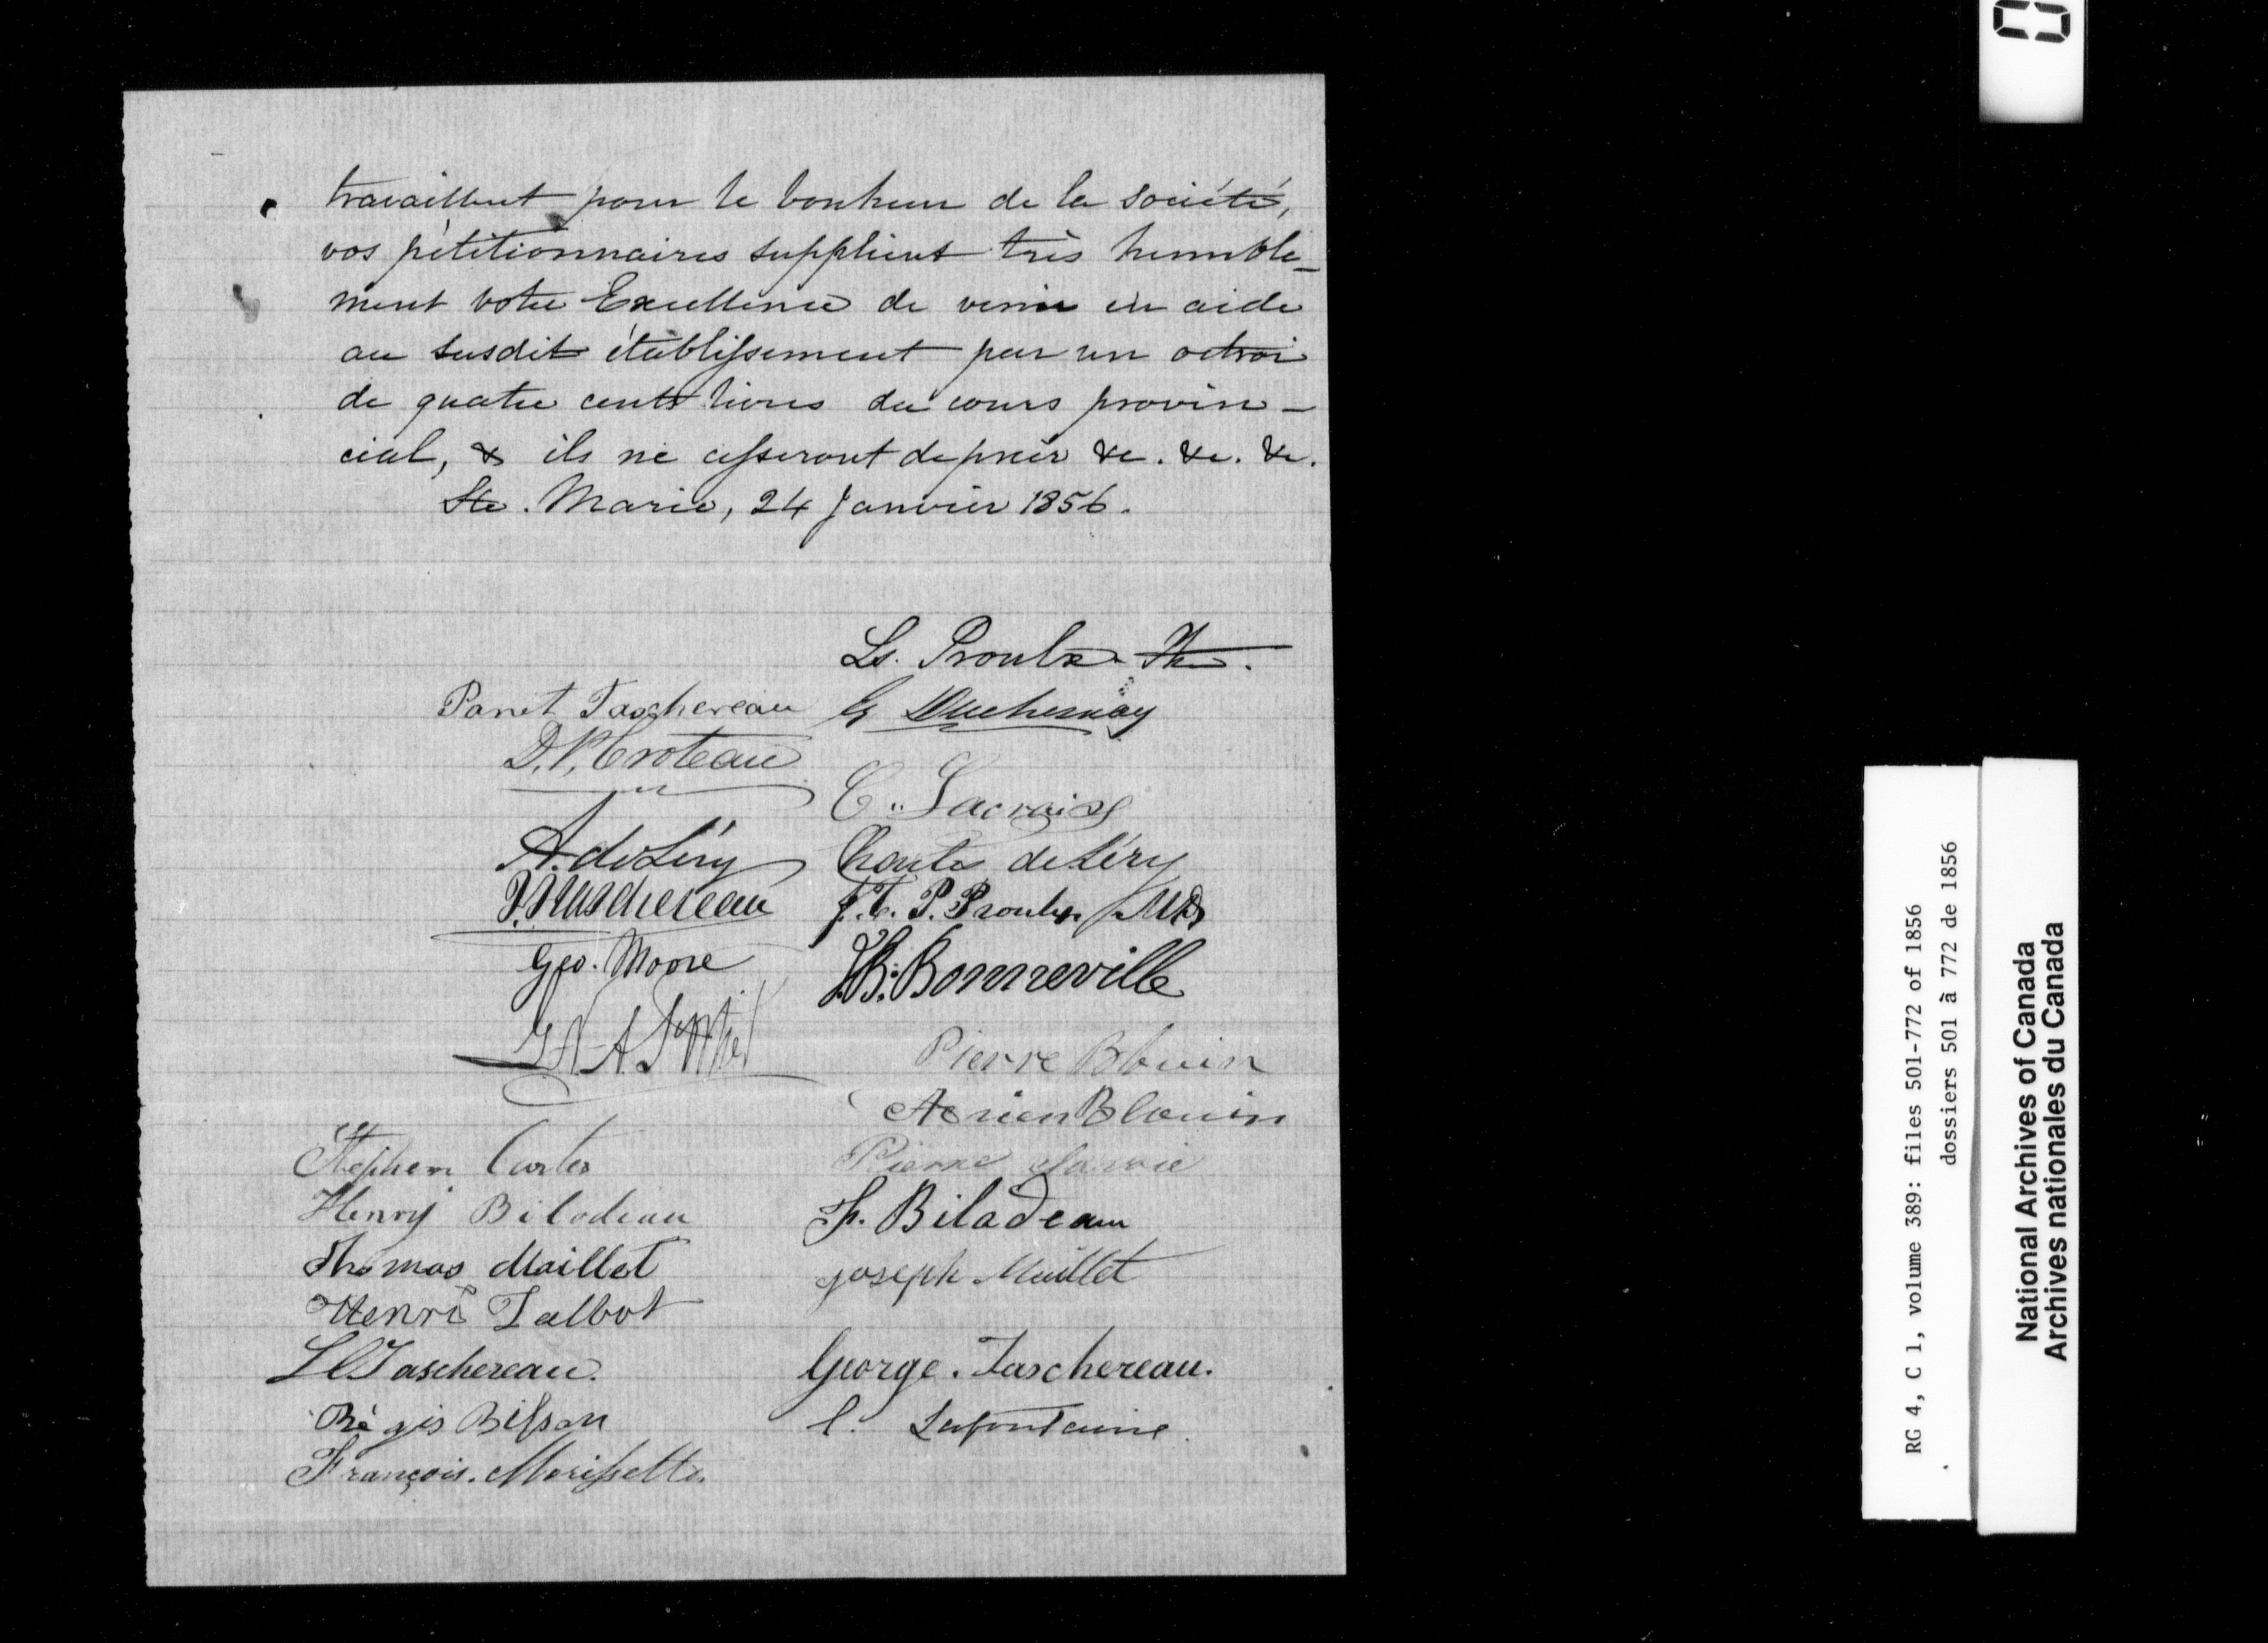 travaillent pour le bonheur de la société,
vos pétitionnaires supplient très humble-
ment votre Excellence de venir en aide
au susdit établissement par un octroi
de quatre cents livres du cours provin-
cial, & ils ne cesseront de prier &c. &c. &c.
Ste. Marie, 24 Janvier 1856.
Ls. Proulx Ptre.
Panet Taschereau
G Duchesnay
D. P. Croteau
C. Lacroix
A. de Léry
Charles de Léry
Taschereau
J. E. P. Proulx MD
Geo. Moore
J.B. Bonneville
Pierre Blouin
Adrien Blouin
Stephen Carter
Pierre Savoie
Henry Bilodeau
F. Biladeau
Thomas Maillet
Joseph Maillet
Henri Talbot
Taschereau.
George. Taschereau.
Régis Bisson
C. Lafontaine.
François. Morissette.
RG 4, C 1, volume 389: files 501-772 of 1856
dossiers 501 à 772 de 1856
National Archives of Canada
Archives nationales du Canada